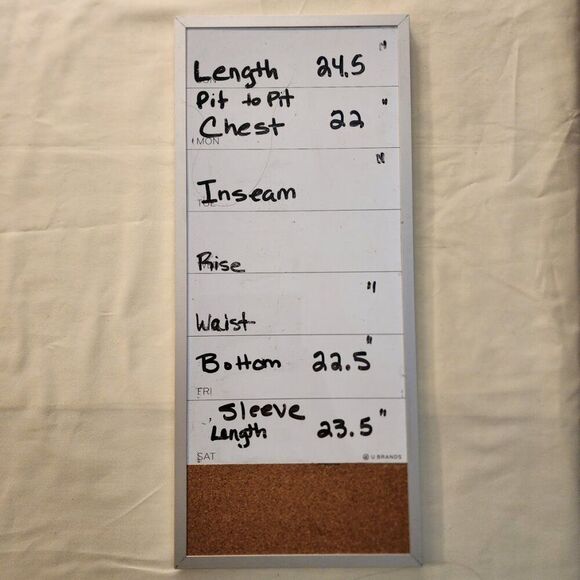 Length 24.5"
Pit to Pit
Chest 22"
MON
Inseam "
Rise
Waist "
Bottom 22.5"
FRI
Sleeve
Length 23.5"
SAT U BRANDS